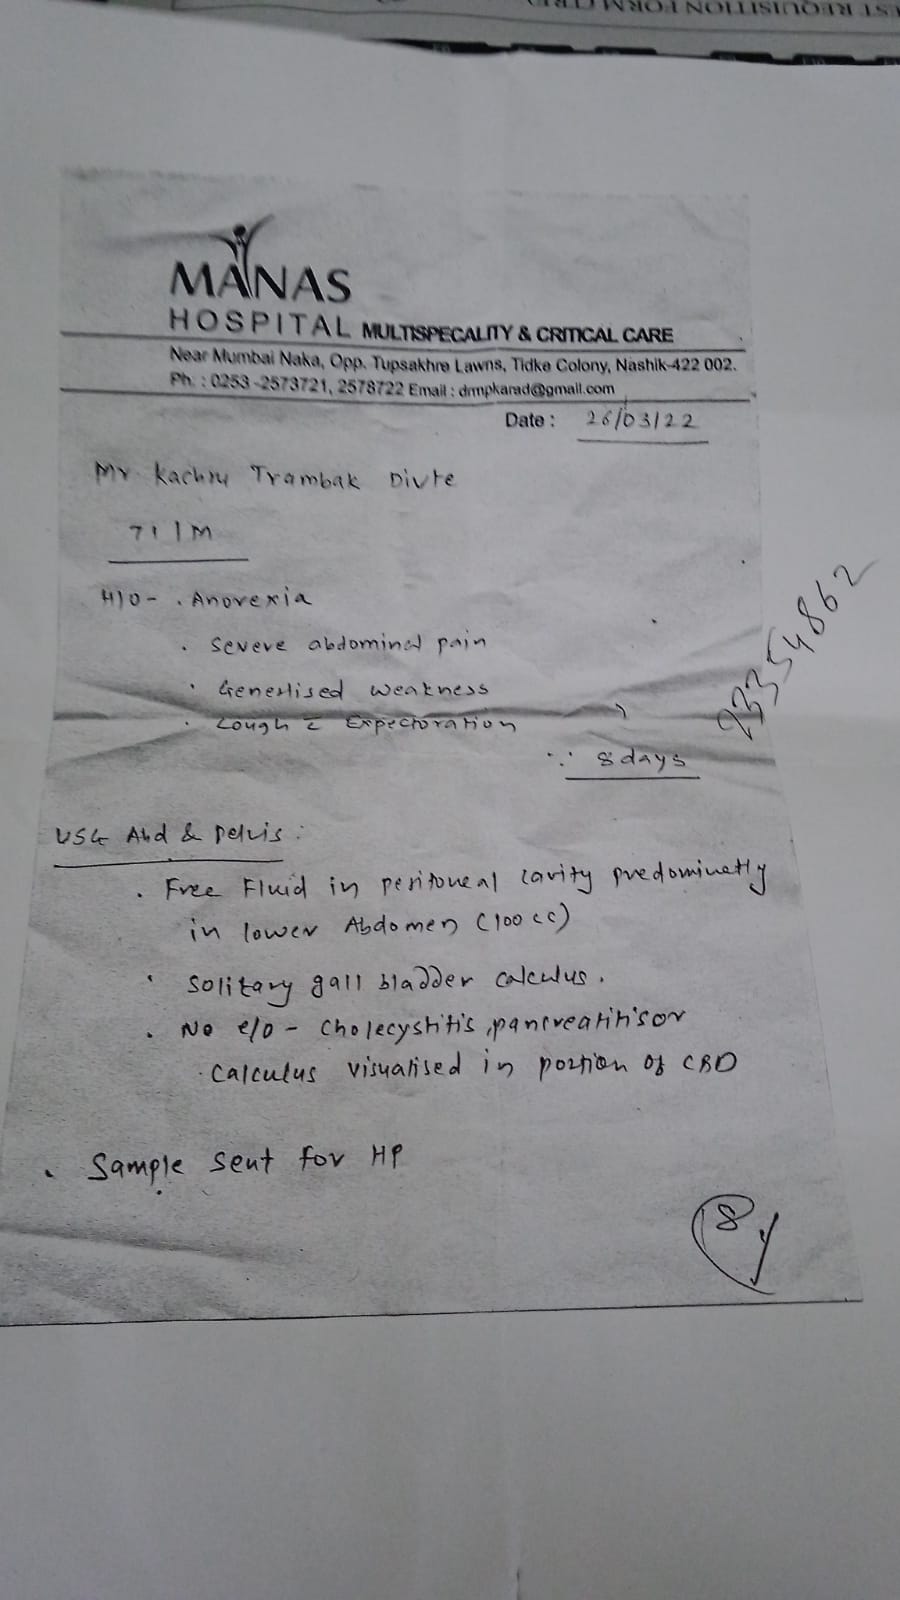 EST REQUISITION FORM (TRF
MANAS
HOSPITAL MULTISPECALITY & CRITICAL CARE
Near Mumbai Naka, Opp. Tupsakhre Lawns, Tidke Colony, Nashik-422 002.
Ph. : 0253 -2573721, 2578722 Email : drmpkarad@gmail.com
Date : 26/03/22
Mr. Kachru Trambak Divte
71 / M
H/O - . Anorexia
. Severe abdominal pain
. Generlised weakness
. Cough c̄ Expectoration
∵ 8 days
93354862
USG Abd & pelvis :
. Free Fluid in peritoneal cavity predominetly
in lower Abdomen (100 cc)
. Solitary gall bladder calculus.
. No e/o - cholecystitis, pancreatitis or
calculus visualised in portion of CBD
. Sample sent for HP